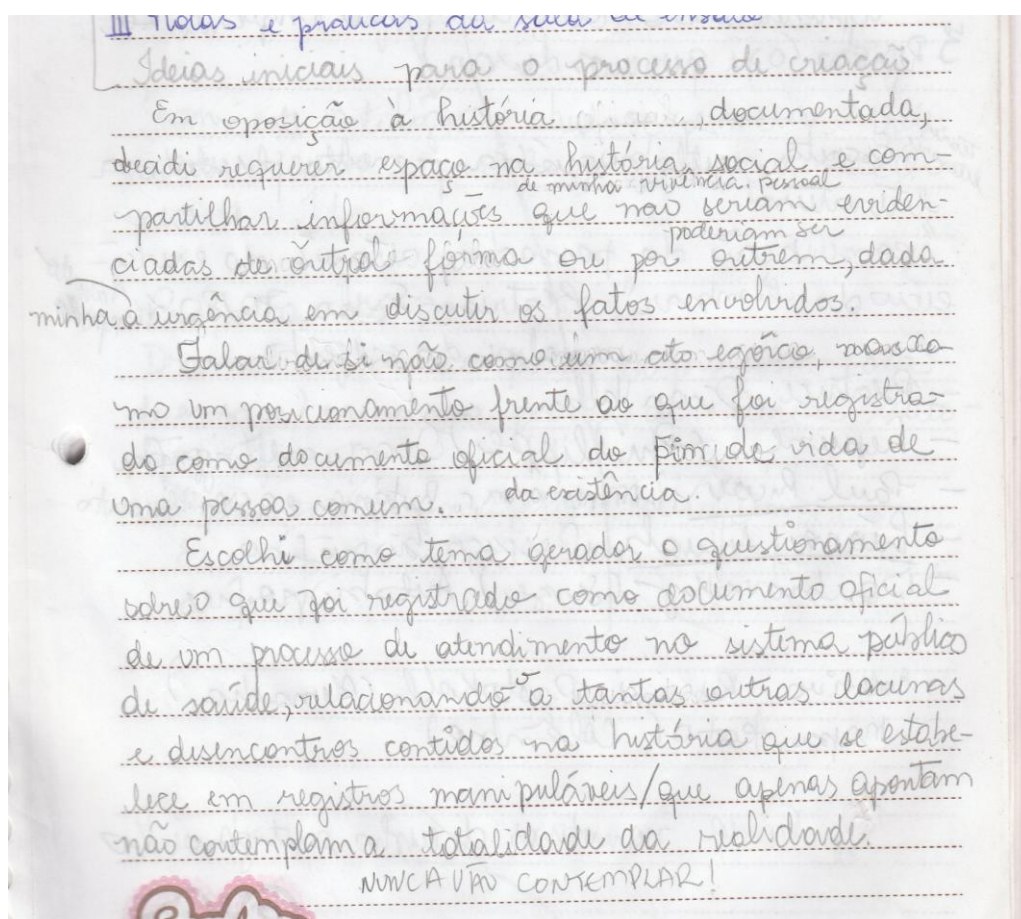 III Notas e práticas da sala de ensaio
Ideias iniciais para o processo de criação
Em oposição à história documentada,
decidi requerer espaço na história social e com-
de minha vivência pessoal
partilhar informações que não seriam eviden-
poderiam ser
ciadas de outra forma ou por outrem, dada
minha a urgência em discutir os fatos envolvidos.
Falar de si não como um ato egóico, mas co
mo um posicionamento frente ao que foi registra-
do como documento oficial do fim de vida de
uma pessoa comum. da existência.
Escolhi como tema gerador o questionamento
sobre o que foi registrado como documento oficial
de um processo de atendimento no sistema público
de saúde, relacionando o a tantas outras lacunas
e disencontros contidos na história que se estabe-
lece em registros manipuláveis/que apenas apontam
não contemplam a totalidade da realidade.
NUNCA VÃO CONTEMPLAR!